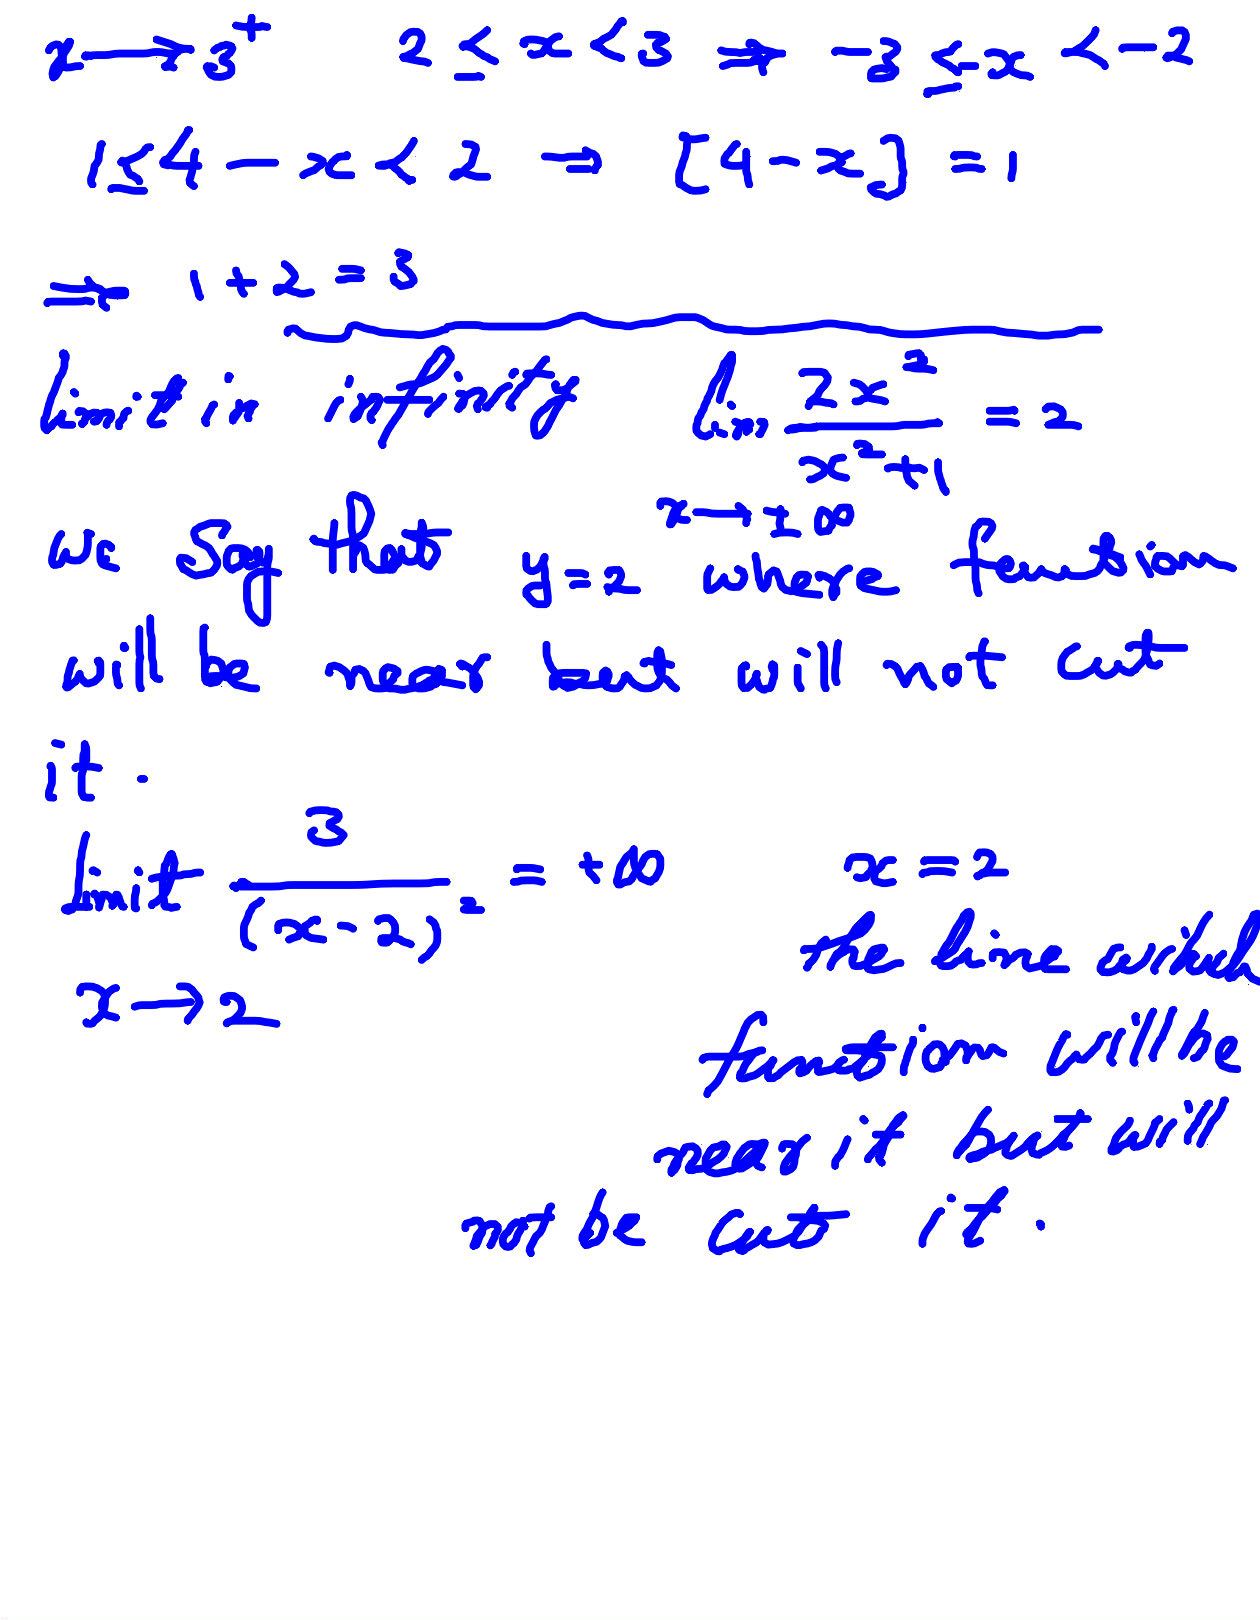 x → 3⁺ 2 ≤ x < 3 ⇒ -3 ≤ -x < -2
1 ≤ 4 - x < 2 ⇒ [4 - x] = 1
⇒ 1 + 2 = 3
limit in infinity lim 2x² / x² + 1 = 2
x → ± ∞
we say that y = 2 where function
will be near but will not cut
it .
limit 3 / (x - 2)² = + ∞ x = 2
x → 2
the line which
function will be
near it but will
not be cut it .